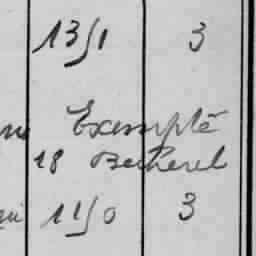 13/1 3
Exempté
18 Becherel
11/0 3